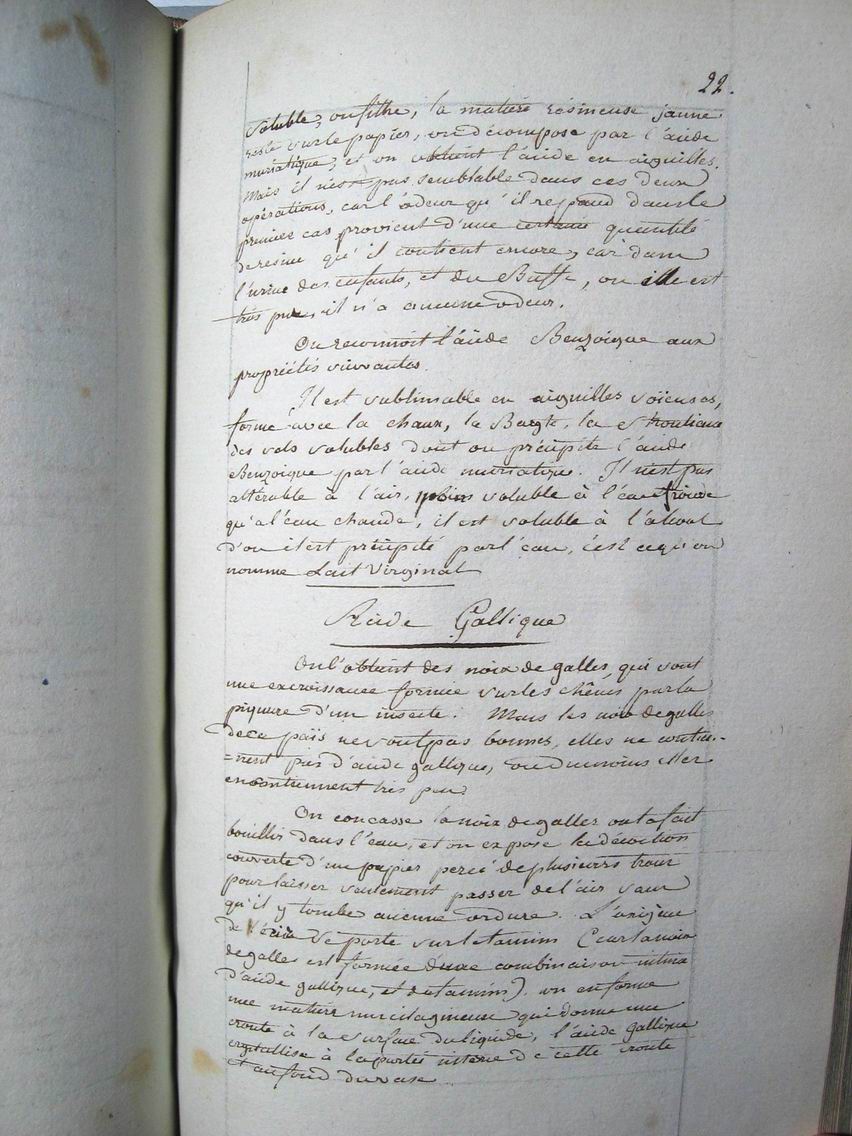 22.
soluble, on filtre, la matiere résineuse jaune
reste sur le papier, on décompose par l'acide
muriatique, et on obtient l'acide en aiguilles.
Mais il n'est pas semblable dans ces deux
opérations, car l'odeur qu'il respand dans le
premier cas provient d'une certaine quantité
de resine qu'il contient encore, car dans
l'urine des enfants, et du Buffle, ou elle est
très pure il n'a aucune odeur.
On reconnoit l'acide Benzoique aux
propriétés suivantes.
Il est sublimable en aiguilles soieuses,
forme avec la chaux, la Baryte, la Strontiane
des sels solubles dont on précipite l'acide
Benzoique par l'acide muriatique. Il n'est pas
altérable à l'air, moins soluble à l'eau froide
qu'a l'eau chaude, il est soluble à l'alcool
d'ou il est précipité par l'eau, c'est ce qu'on
nomme Lait Virginal
Acide Gallique
On l'obtient des noix de galles, qui sont
une excroissance formée sur les chênes par la
piquure d'un insecte. Mais les noix de galles
de ce païs ne sont pas bonnes, elles ne contie-
=nnent pas d'acide gallique, ou du moins elles
en contiennent très peu.
On concasse la noix de galles on la fait
bouillir dans l'eau, et on expose la décoction
couverte d'un papier percé de plusieurs trous
pour laisser seulement passer de l'air sans
qu'il y tombe aucune ordure. L'origine
de l'acide se porte sur le tamin (car la noix
de galles est formée d'une combinaison intime
d'acide gallique, et de tamins). on en forme
une matiere mucilagineuse qui donne une
croute à la surface du liquide, l'acide gallique
crystallise à la partie interne de cette croute
et au fond du vase.